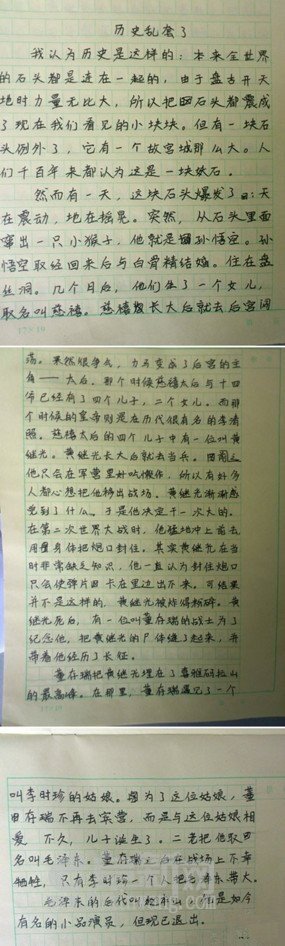 历史乱套了
我认为历史是这样的:本来全世界
的石头都是连在一起的,由于盘古开天
地时力量无比大,所以把石头都震成
了现在我们看见的小块块。但有一块石
头例外了,它有一个故宫城那么大。人
们千百年来都认为这是一块妖石。
然而有一天,这块石头爆发了:天
在震动,地在摇晃。突然,从石头里面
窜出一只小猴子,他就是孙悟空。孙
悟空取经回来后与白骨精结婚。住在盘
丝洞。几个月后,他们生了一个女儿,
取名叫慈禧。慈禧长大后就去后宫闯
荡。果然很争气,力马变成了后宫的主
角——太后。那个时候慈禧太后与十四
爷已经有了四个儿子,二个女儿。而那
个时候的皇帝则是在历代很有名的李清
照。慈禧太后的四个儿子中有一位叫黄
继光。黄继光长大后就去当兵。因
他只会在军营里好吃懒作,所以有好多
人都心想把他踢出战场。黄继光渐渐感
觉到了什么。于是他决定干一次大的。
在第二次世界大战时,他猛地冲上前去,
用瘦身体把炮口封住。其实黄继光在当
时非常缺乏知识,他一直认为封住炮口
只会使弹片卡在里边出不来。可结果
并不是这样的,黄继光被炸得粉碎。黄
继光死后,有一位叫董存瑞的战士为了
纪念他,把黄继光的尸体缝了起来,并
带着他经历了长征。
董存瑞把黄继光埋在了喜雅码拉山
的最高峰。在那里,董存瑞遇见了一个
叫李时珍的姑娘。为了这位姑娘,董
存瑞不再去实营,而是与这位姑娘相
爱。不久,儿子诞生了。二老把他取
名叫毛泽东。董存瑞之后在战场上不幸
牺牲,只有李时珍一个人把泽东带大。
毛泽东的后代叫赵本山,他是如今
有名的小品演员,但现已退出。
17×19